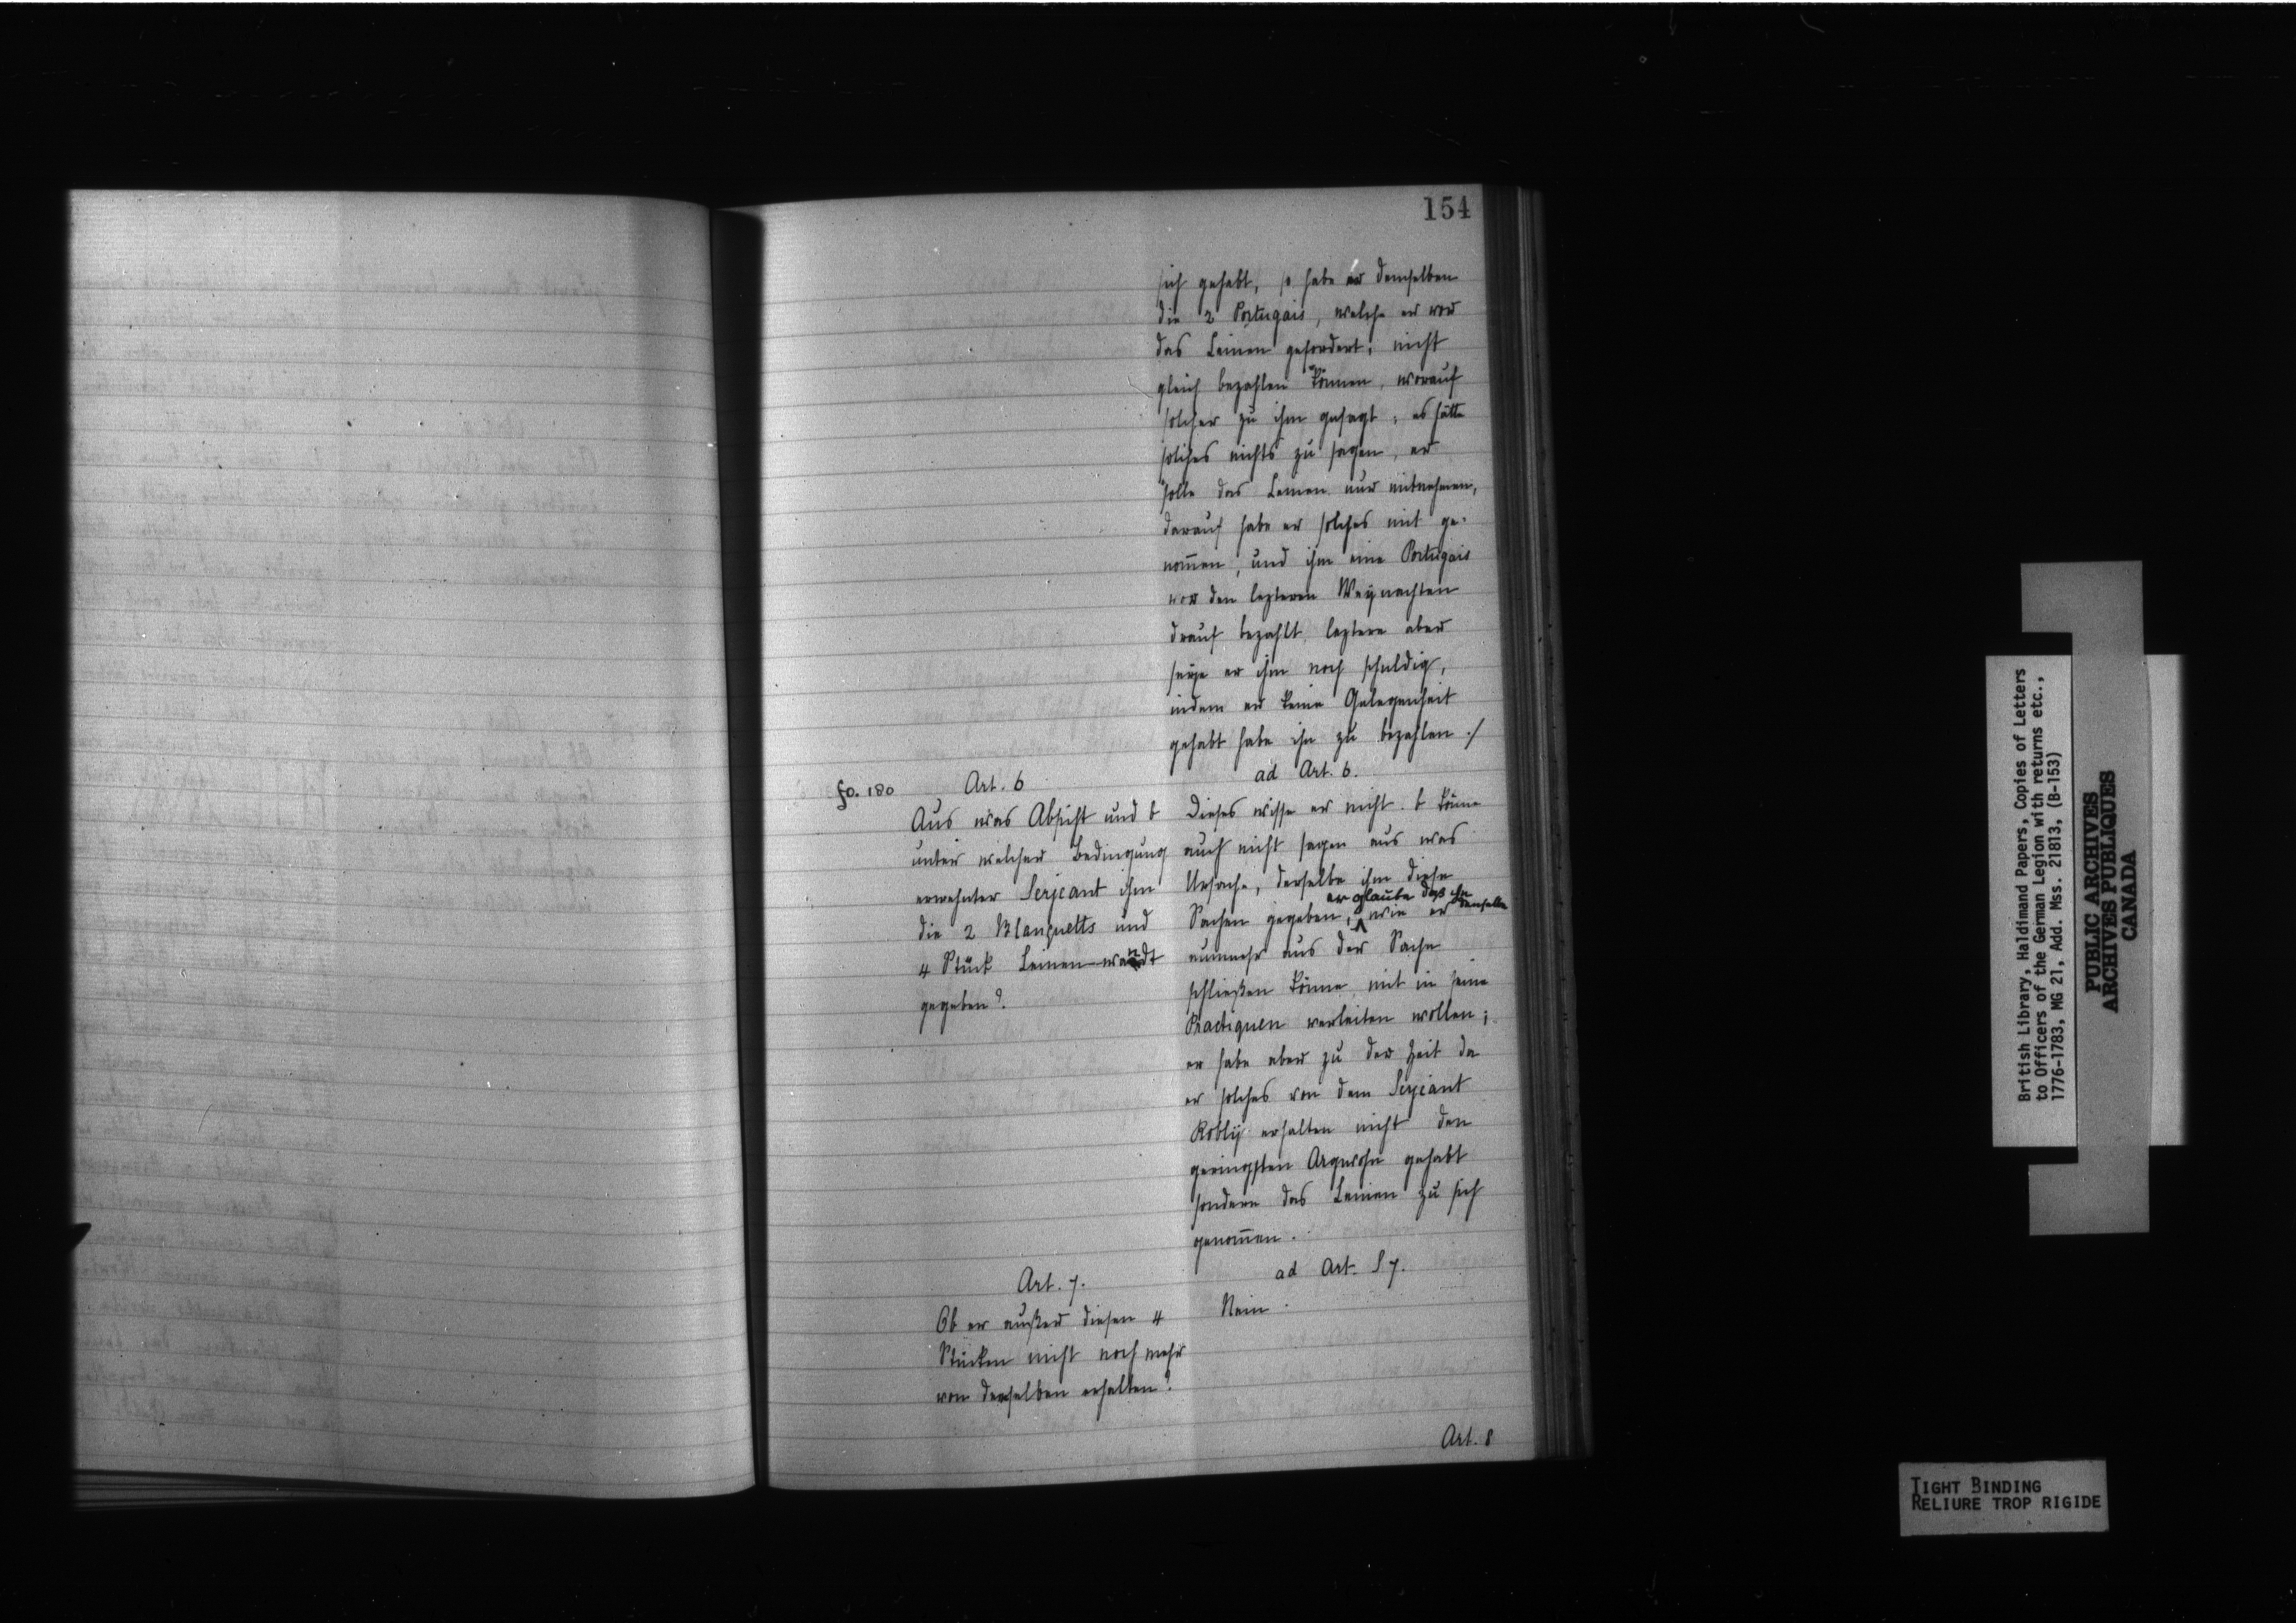 154
sich gehabt, so habe er demselben
die 2 Portugais, welche er vor
das Leinen gefordert, nicht
gleich bezahlen können, worauf
solcher zu ihm gesagt, es hätte
solches nichts zu sagen, er
solle das Leinen nur mitnehmen,
darauf habe er solches mit ge-
nom̄en, und ihm eine Portugais
vor den lezteren Weynachten
drauf bezahlt, leztere aber
seye er ihm noch schuldig,
indem er keine Gelegenheit
gehabt habe ihn zu bezahlen ./
fo. 180
Art. 6
Aus was Absicht und
unter welcher Bedingung
erwehnter Serjeant ihm
die 2 Blanquetts und
4 Stück Leinen-wandt
gegeben?
ad Art. 6.
Dieses wisse er nicht. könne
auch nicht sagen aus was
Ursache, derselbe ihm diese
er glaube das ihn
Sachen gegeben, wie er denselbe
nunmehr aus der Sache
schließen könne, mit in seine
Practiquen verleiten wollen;
er habe aber zu der Zeit da
er solches von dem Serjeant
Robly erhalten nicht den
geringsten Argwohn gehabt
sondern das Leinen zu sich
genom̄en.
Art. 7.
Ob er außer diesen 4
Stücken nicht noch mehr
von demselben erhalten?
ad Art. 7.
Nein.
Art. 8
British Library, Haldimand Papers, Copies of Letters
to Officers of the German Legion with returns etc.,
1776-1783, MG 21, Add. Mss. 21813, (B-153)
PUBLIC ARCHIVES
ARCHIVES PUBLIQUES
CANADA
TIGHT BINDING
RELIURE TROP RIGIDE